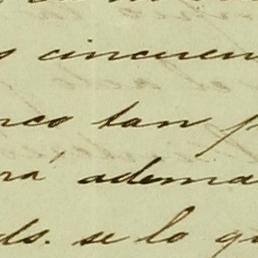 s cincuen
nco tan p
rá, adema
ds. se lo q